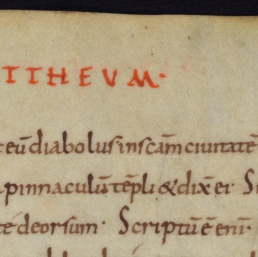 TTHEVM·
eū diabolus in scām ciuitatē
pinnaculū tēpli & dix̄ ei· S
te deorsum· Scriptū ē enī·